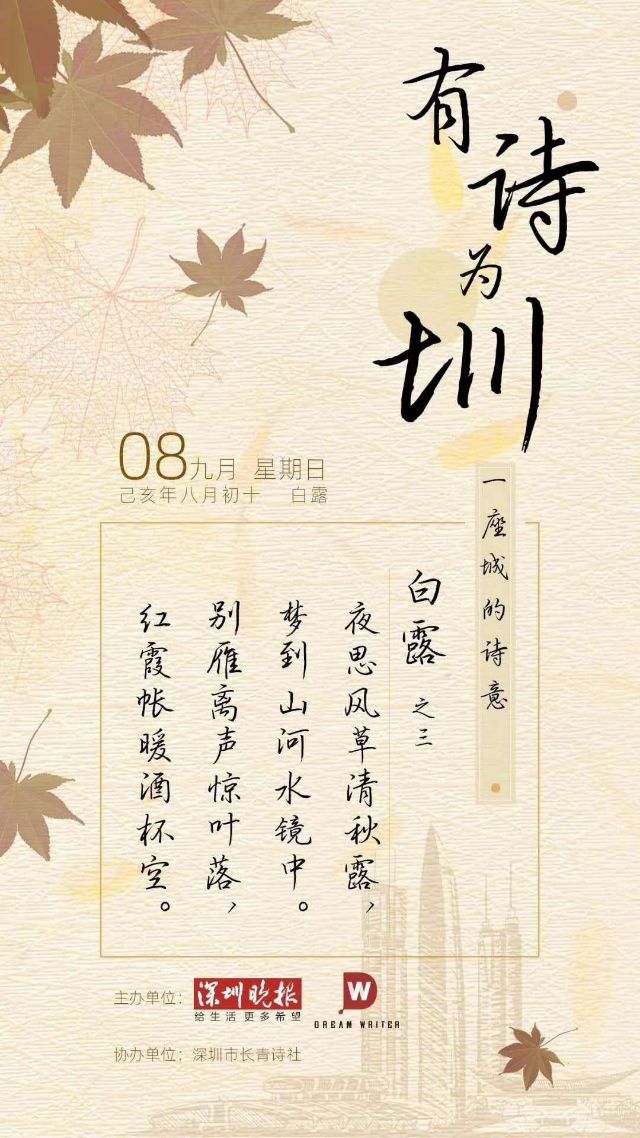 有诗为圳
一座城的诗意
08 九月 星期日
己亥年八月初十 白露
白露 之三
夜思风草清秋露，
梦到山河水镜中。
别雁离声惊叶落，
红霞帐暖酒杯空。
主办单位：深圳晚报
给生活更多希望
DW
DREAM WRITER
协办单位：深圳市长青诗社